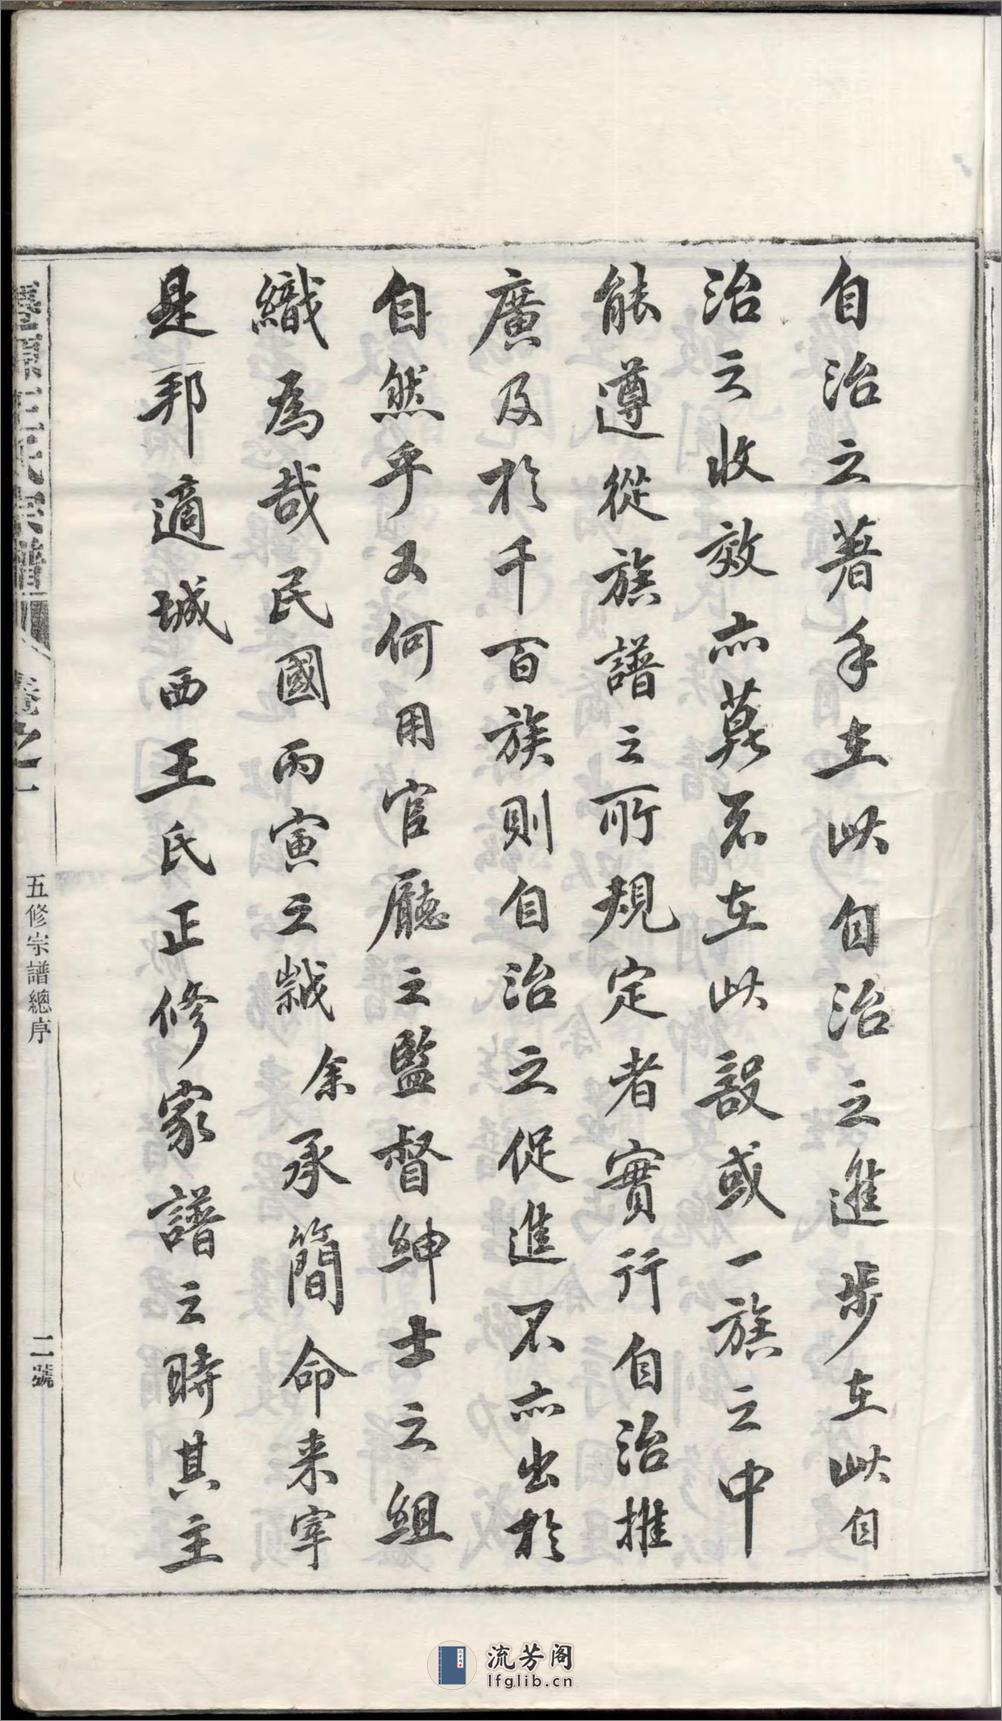 自治之著手在此自治之進步在此自
治之收效亦莫不在此設或一族之中
能遵從族譜之所規定者實行自治推
廣及於千百族則自治之促進不亦出於
自然乎又何用官廳之監督紳士之組
織為哉民國丙寅之歲余承簡命来宰
是邦適城西王氏正修家譜之時其主
王氏宗譜
卷之一
五修宗譜總序
二號
流芳阁
lfglib.cn